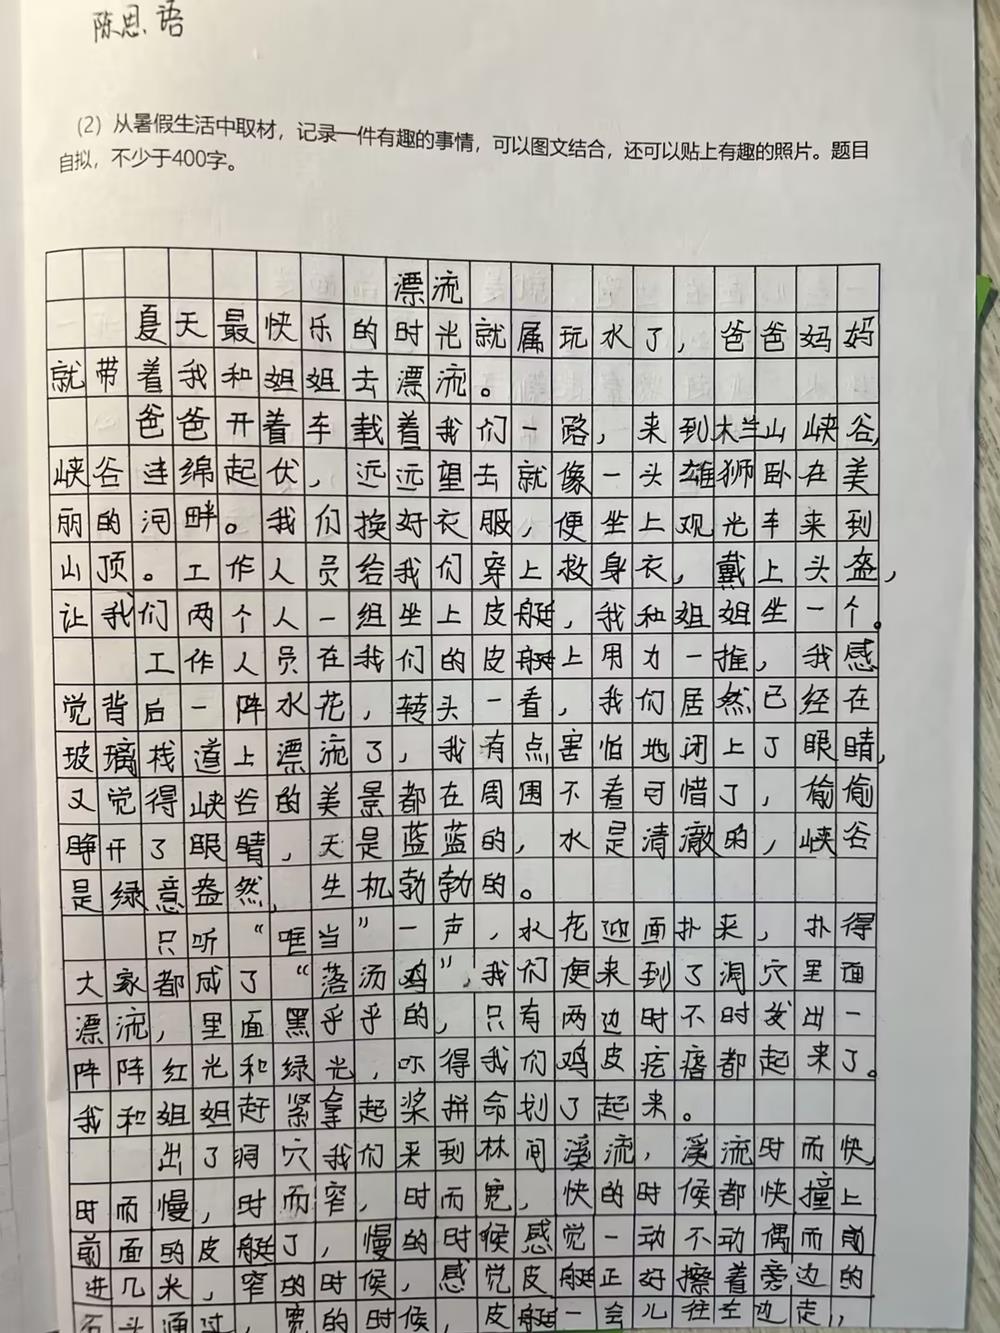 陈思语
(2) 从暑假生活中取材，记录一件有趣的事情，可以图文结合，还可以贴上有趣的照片。题目
自拟，不少于400字。
漂流
夏天最快乐的时光就属玩水了，爸爸妈妈
就带着我和姐姐去漂流。
爸爸开着车载着我们一路，来到木兰山峡谷，
峡谷连绵起伏，远远望去就像一头雄狮卧在美
丽的河畔。我们换好衣服，便坐上观光车来到
山顶。工作人员给我们穿上救身衣，戴上头盔，
让我们两个人一组坐上皮艇，我和姐姐坐一个。
工作人员在我们的皮艇上用力一推，我感
觉背后一阵水花，转头一看，我们居然已经在
玻璃栈道上漂流了，我有点害怕地闭上了眼睛，
又觉得峡谷的美景都在周围不看可惜了，偷偷
睁开了眼睛，天是蓝蓝的，水是清澈的，峡谷
是绿意盎然，生机勃勃的。
只听“哐当”一声，水花迎面扑来，扑得
大家都成了“落汤鸡”，我们便来到了洞穴里面
漂流，里面黑乎乎的，只有两边时不时发出一
阵阵红光和绿光，吓得我们鸡皮疙瘩都起来了。
我和姐姐赶紧拿起桨拼命划了起来。
出了洞穴我们来到林间溪流，溪流时而快，
时而慢，时而窄，时而宽，快的时候都快撞上
前面的皮艇了，慢的时候感觉一动不动偶而前
进几米，窄的时候，感觉皮艇正好擦着旁边的
石头通过，宽的时候，皮艇一会儿往左边走，